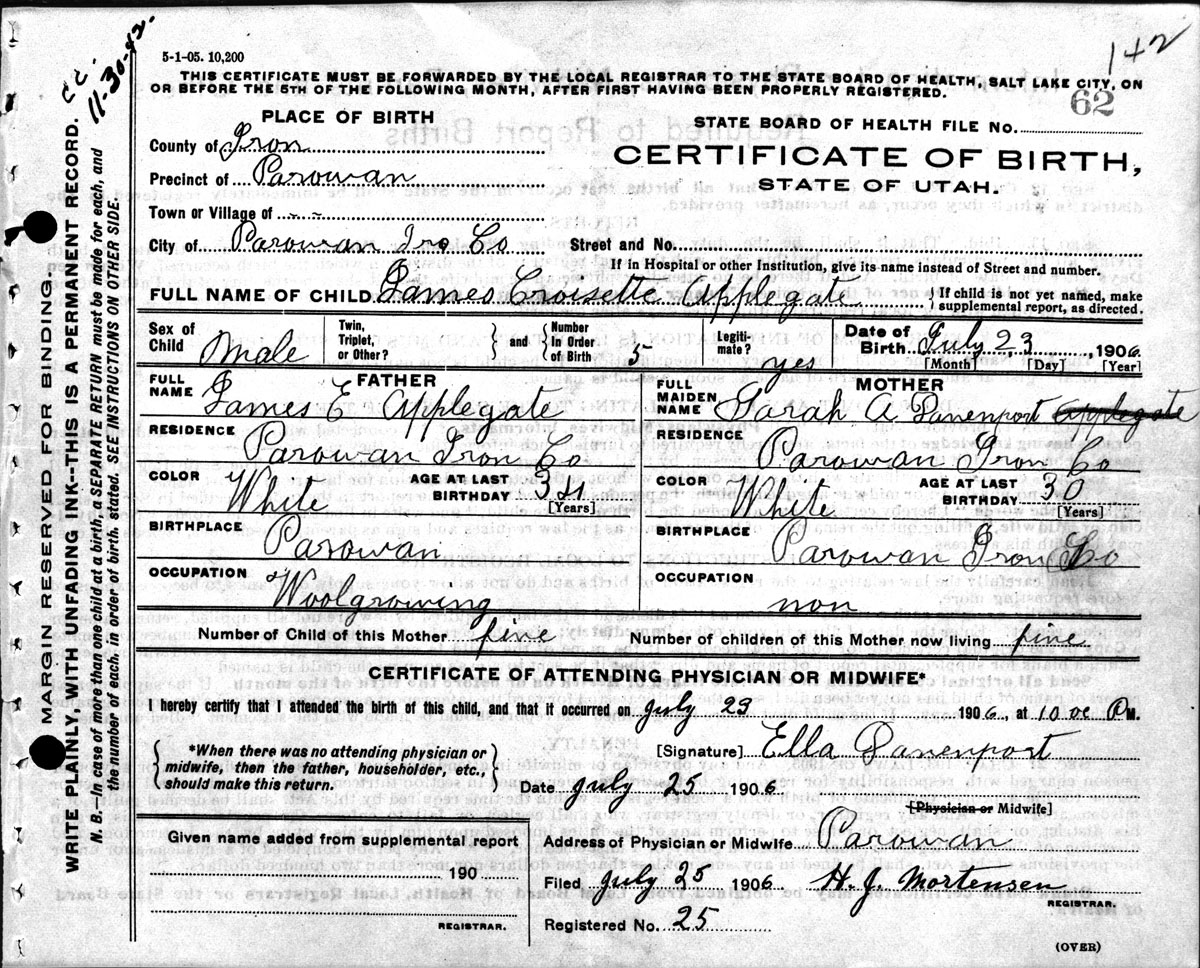 142
5-1-05. 10,200
THIS CERTIFICATE MUST BE FORWARDED BY THE LOCAL REGISTRAR TO THE STATE BOARD OF HEALTH, SALT LAKE CITY, ON
OR BEFORE THE 5TH OF THE FOLLOWING MONTH, AFTER FIRST HAVING BEEN PROPERLY REGISTERED.
62
PLACE OF BIRTH
STATE BOARD OF HEALTH FILE No.
County of Iron
CERTIFICATE OF BIRTH,
STATE OF UTAH.
Precinct of Parowan
Town or Village of - -
City of Parowan Iro Co
Street and No.
If in Hospital or other Institution, give its name instead of Street and number.
FULL NAME OF CHILD James Croisette Applegate
} If child is not yet named, make
supplemental report, as directed.
Sex of Child Male
Twin, Triplet, or Other? } and { Number In Order of Birth 5
Legiti- mate? yes
Date of Birth July 23, 1906
[Month] [Day] [Year]
FATHER
FULL NAME James E Applegate
RESIDENCE Parowan Iron Co
COLOR White AGE AT LAST BIRTHDAY 34 [Years]
BIRTHPLACE Parowan
OCCUPATION Woolgrowing
MOTHER
FULL MAIDEN NAME Sarah A Davenport Applegate
RESIDENCE Parowan Iron Co
COLOR White AGE AT LAST BIRTHDAY 30 [Years]
BIRTHPLACE Parowan Iron Co
OCCUPATION non
Number of Child of this Mother five Number of children of this Mother now living five
CERTIFICATE OF ATTENDING PHYSICIAN OR MIDWIFE*
I hereby certify that I attended the birth of this child, and that it occurred on July 23 1906, at 10 oc P M.
{ *When there was no attending physician or
midwife, then the father, householder, etc.,
should make this return. }
[Signature] Ella Davenport
Date July 25 1906
[Physician or Midwife]
Given name added from supplemental report
190
REGISTRAR.
Address of Physician or Midwife Parowan
Filed July 25 1906 H. J. Mortensen
REGISTRAR.
Registered No. 25
(OVER)
MARGIN RESERVED FOR BINDING.
WRITE PLAINLY, WITH UNFADING INK--THIS IS A PERMANENT RECORD.
N. B.—In case of more than one child at a birth, a SEPARATE RETURN must be made for each, and
the number of each, in order of birth, stated. SEE INSTRUCTIONS ON OTHER SIDE.
CC.
11-30-42.